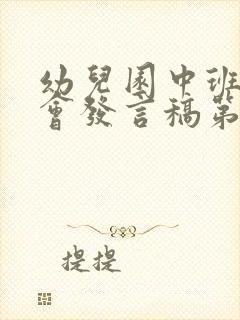 幼兒園中班
會發言稿第
提提